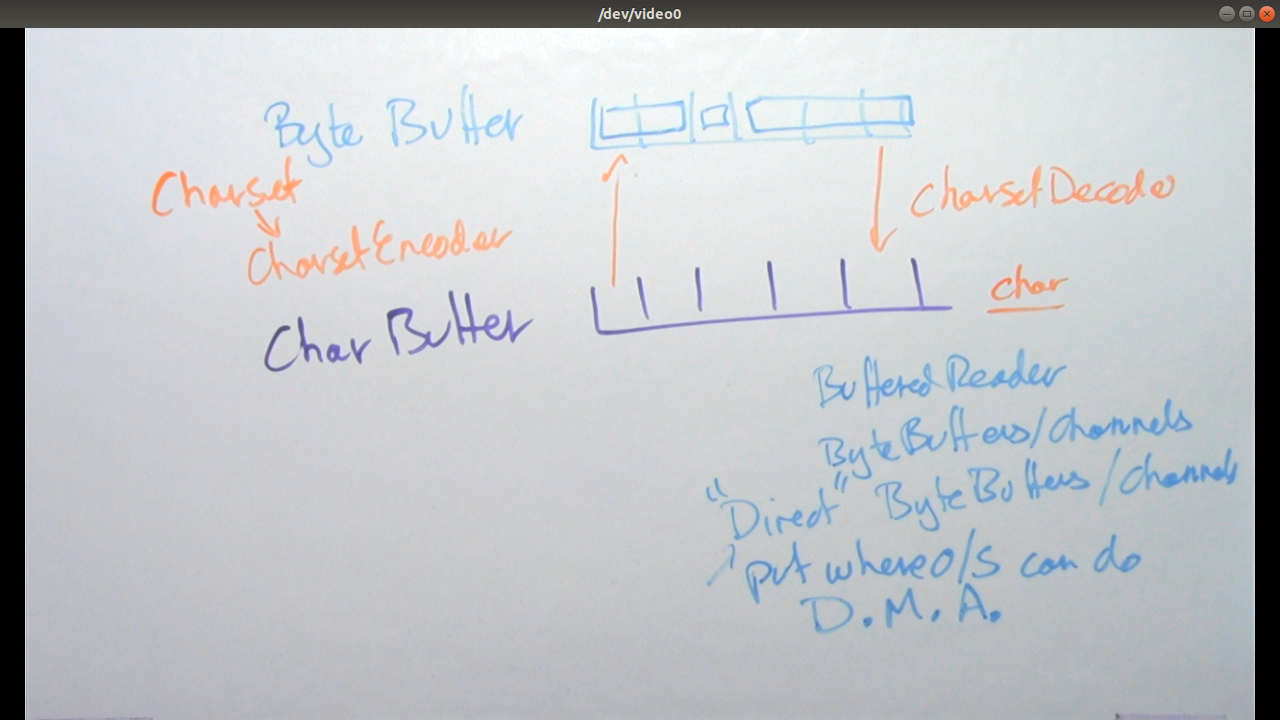 /dev/video0
Byte Buffer
Charset
CharsetEncoder
CharsetDecode
Char Buffer
char
BufferedReader
ByteBuffers/Channels
"Direct" ByteBuffers/Channels
put where O/S can do
D.M.A.